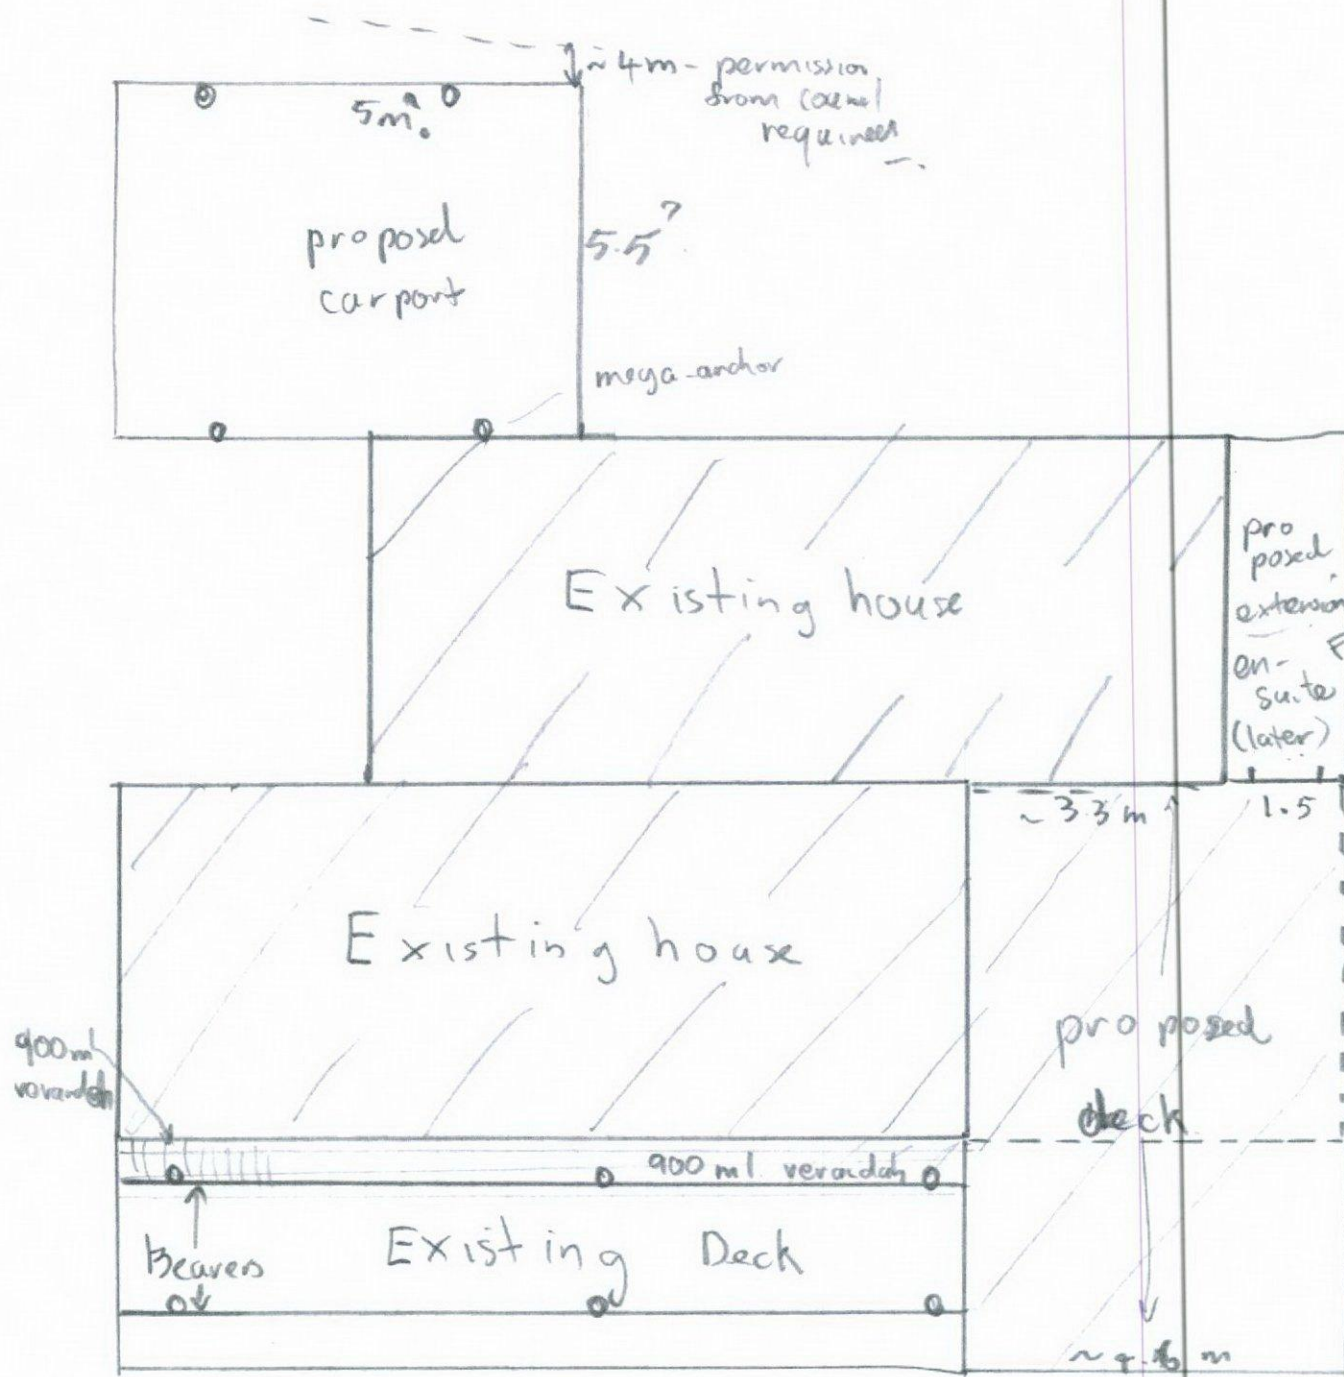 ~ 4m - permission
from
required
5m?
proposed
carport
5.5?
mega-anchor
Existing house
pro
posed
extension
en-
suite
(later)
~ 3.3 m
1.5
Existing house
proposed
deck
900ml
verandah
900 ml. verandah
Bearers
Existing Deck